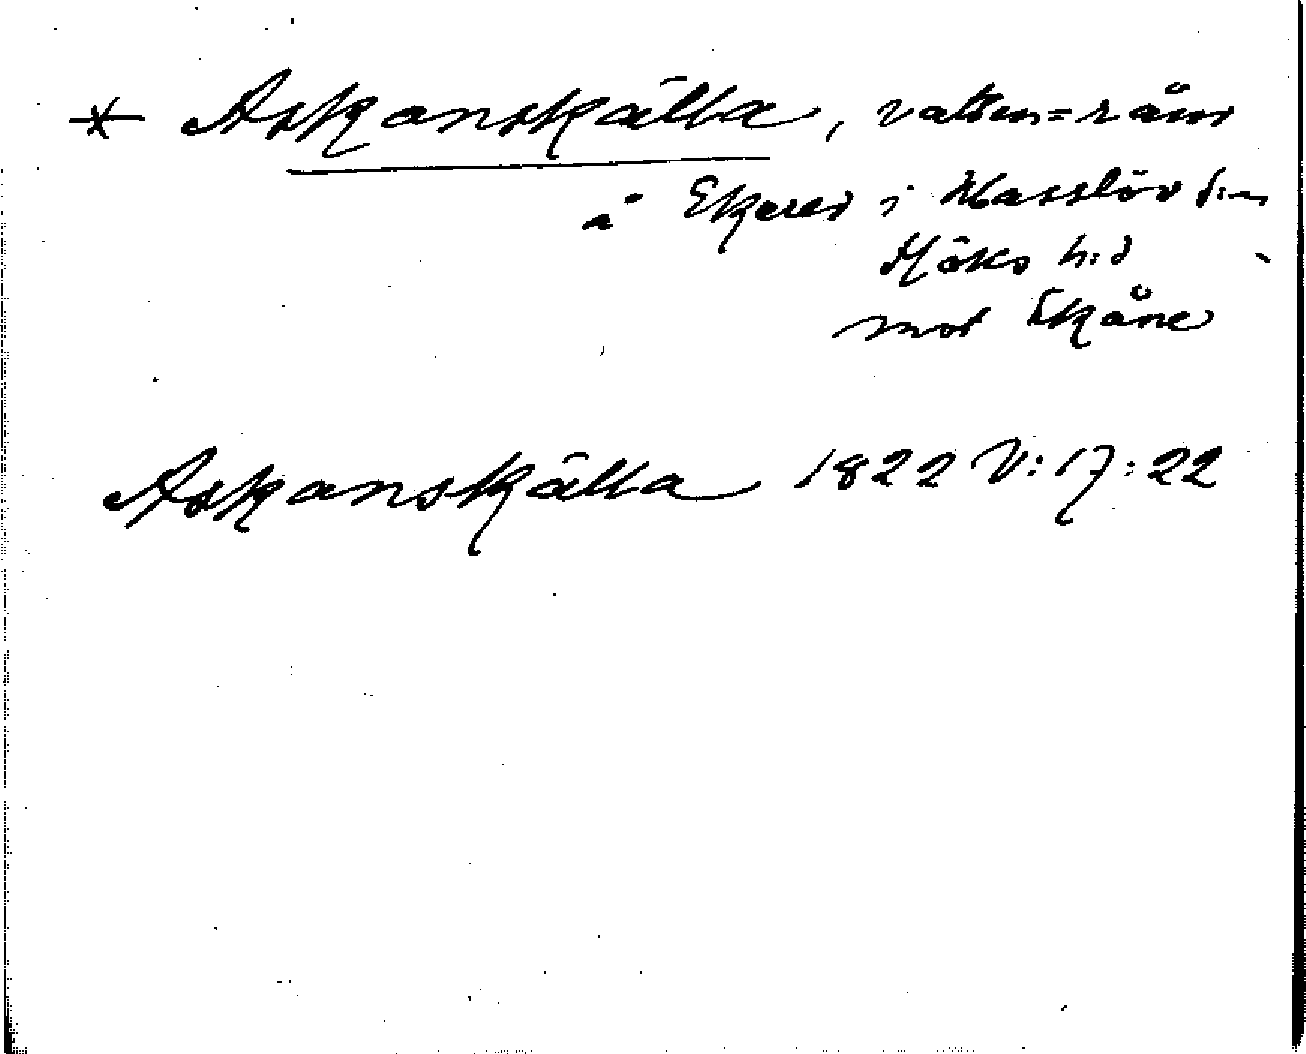 * Askanskälla, vatten=ränn
å Ekered i Hasslöv s:n
Höks h:d
mot Skåne
Askanskälla 1822 V:17:22